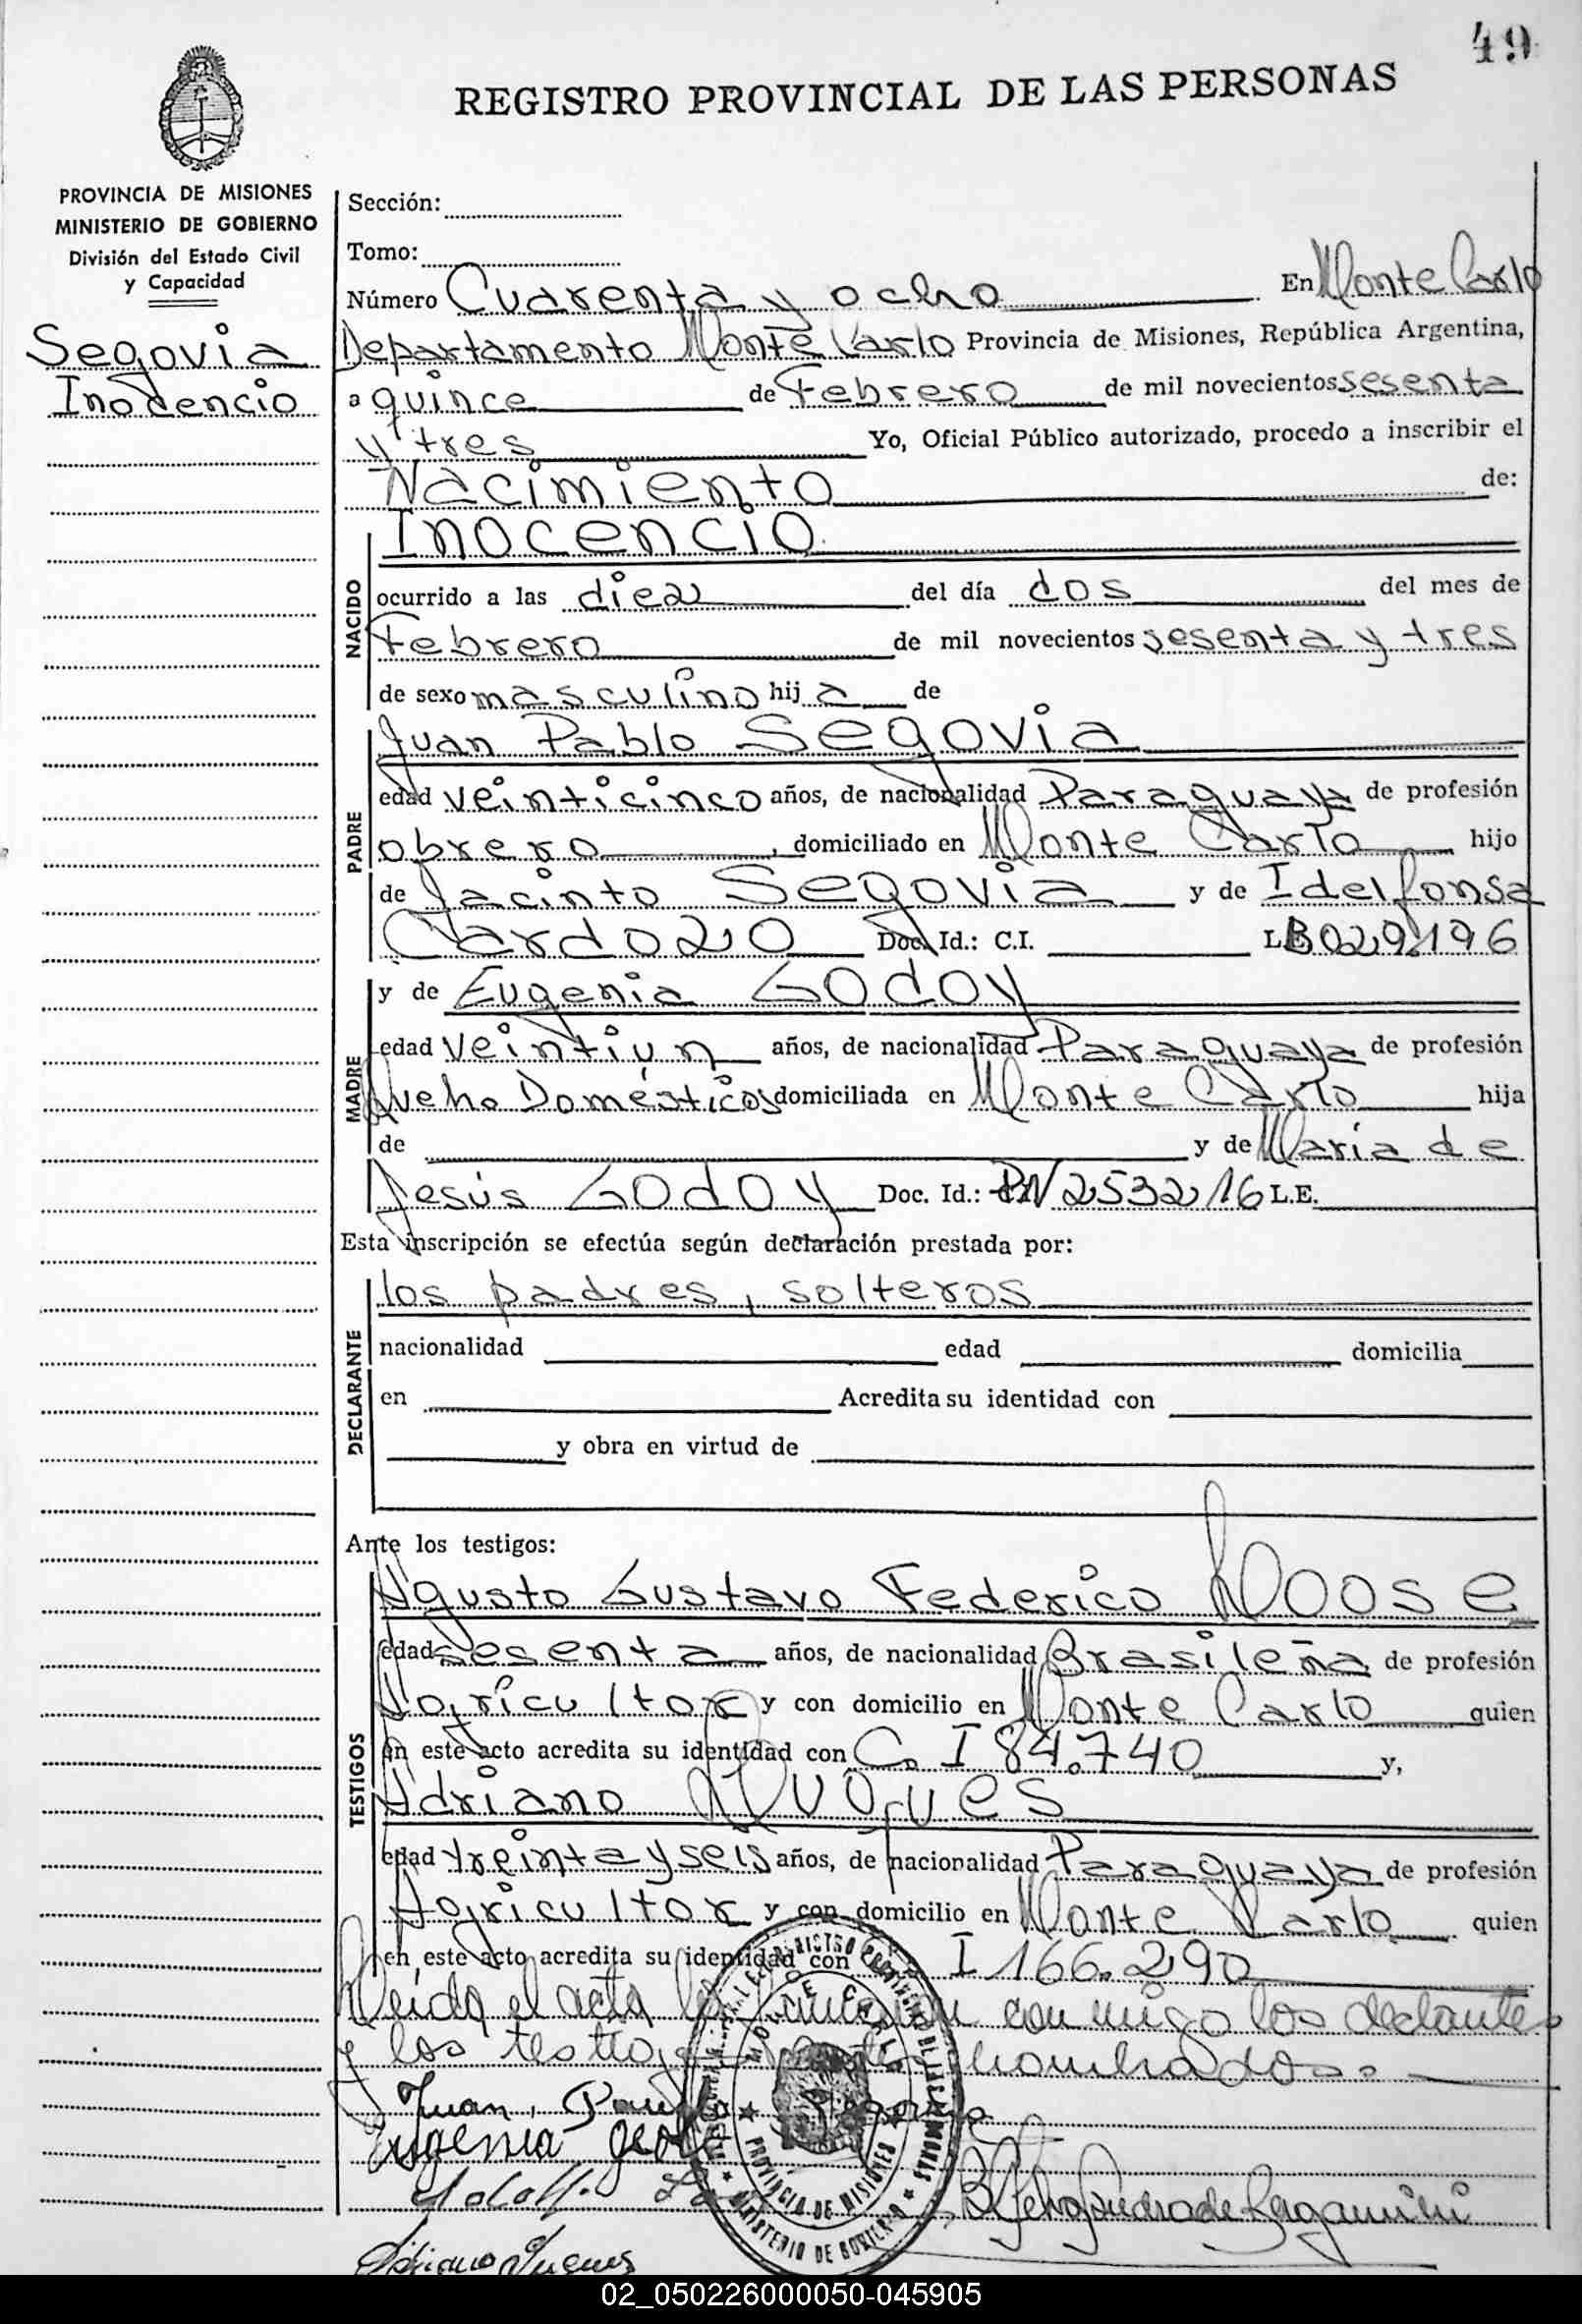 49
REGISTRO PROVINCIAL DE LAS PERSONAS
PROVINCIA DE MISIONES
MINISTERIO DE GOBIERNO
División del Estado Civil
y Capacidad
Segovia
Inocencio
Sección:
Tomo:
Número Cuarenta y ocho En Monte Carlo
Departamento Monte Carlo Provincia de Misiones, República Argentina,
a quince de Febrero de mil novecientos sesenta
y tres Yo, Oficial Público autorizado, procedo a inscribir el
Nacimiento de:
NACIDO
Inocencio
ocurrido a las diez del día dos del mes de
Febrero de mil novecientos sesenta y tres
de sexo masculino hij a de
PADRE
Juan Pablo Segovia
edad veinticinco años, de nacionalidad Paraguaya de profesión
obrero, domiciliado en Monte Carlo hijo
de Jacinto Segovia y de Idelfonsa
Cardozo Doc. Id.: C.I. L.E. 029.196
MADRE
y de Eugenia Godoy
edad veintiun años, de nacionalidad Paraguaya de profesión
Queha Domésticos domiciliada en Monte Carlo hija
de y de María de
Jesús Godoy Doc. Id.: PN 2532216 L.E.
Esta inscripción se efectúa según declaración prestada por:
DECLARANTE
los padres, solteros
nacionalidad edad domicilia
en Acredita su identidad con
y obra en virtud de
Ante los testigos:
TESTIGOS
Agusto Gustavo Federico Noose
edad sesenta años, de nacionalidad Brasileña de profesión
Agricultor y con domicilio en Monte Carlo quien
en este acto acredita su identidad con C. I 84.740 y,
Adriano Nuques
edad treinta y seis años, de nacionalidad Paraguaya de profesión
Agricultor y con domicilio en Monte Carlo quien
en este acto acredita su identidad con I 166.290
Leída el acta la con migo los declantes
y los testigos nombrados.
Juan Segovia
Eugenia
MONTE CARLO
PROVINCIA DE MISIONES
REGISTRO PROVINCIAL DE LAS PERSONAS
MINISTERIO DE GOBIERNO
de Bergamini
Adriano
02_050226000050-045905